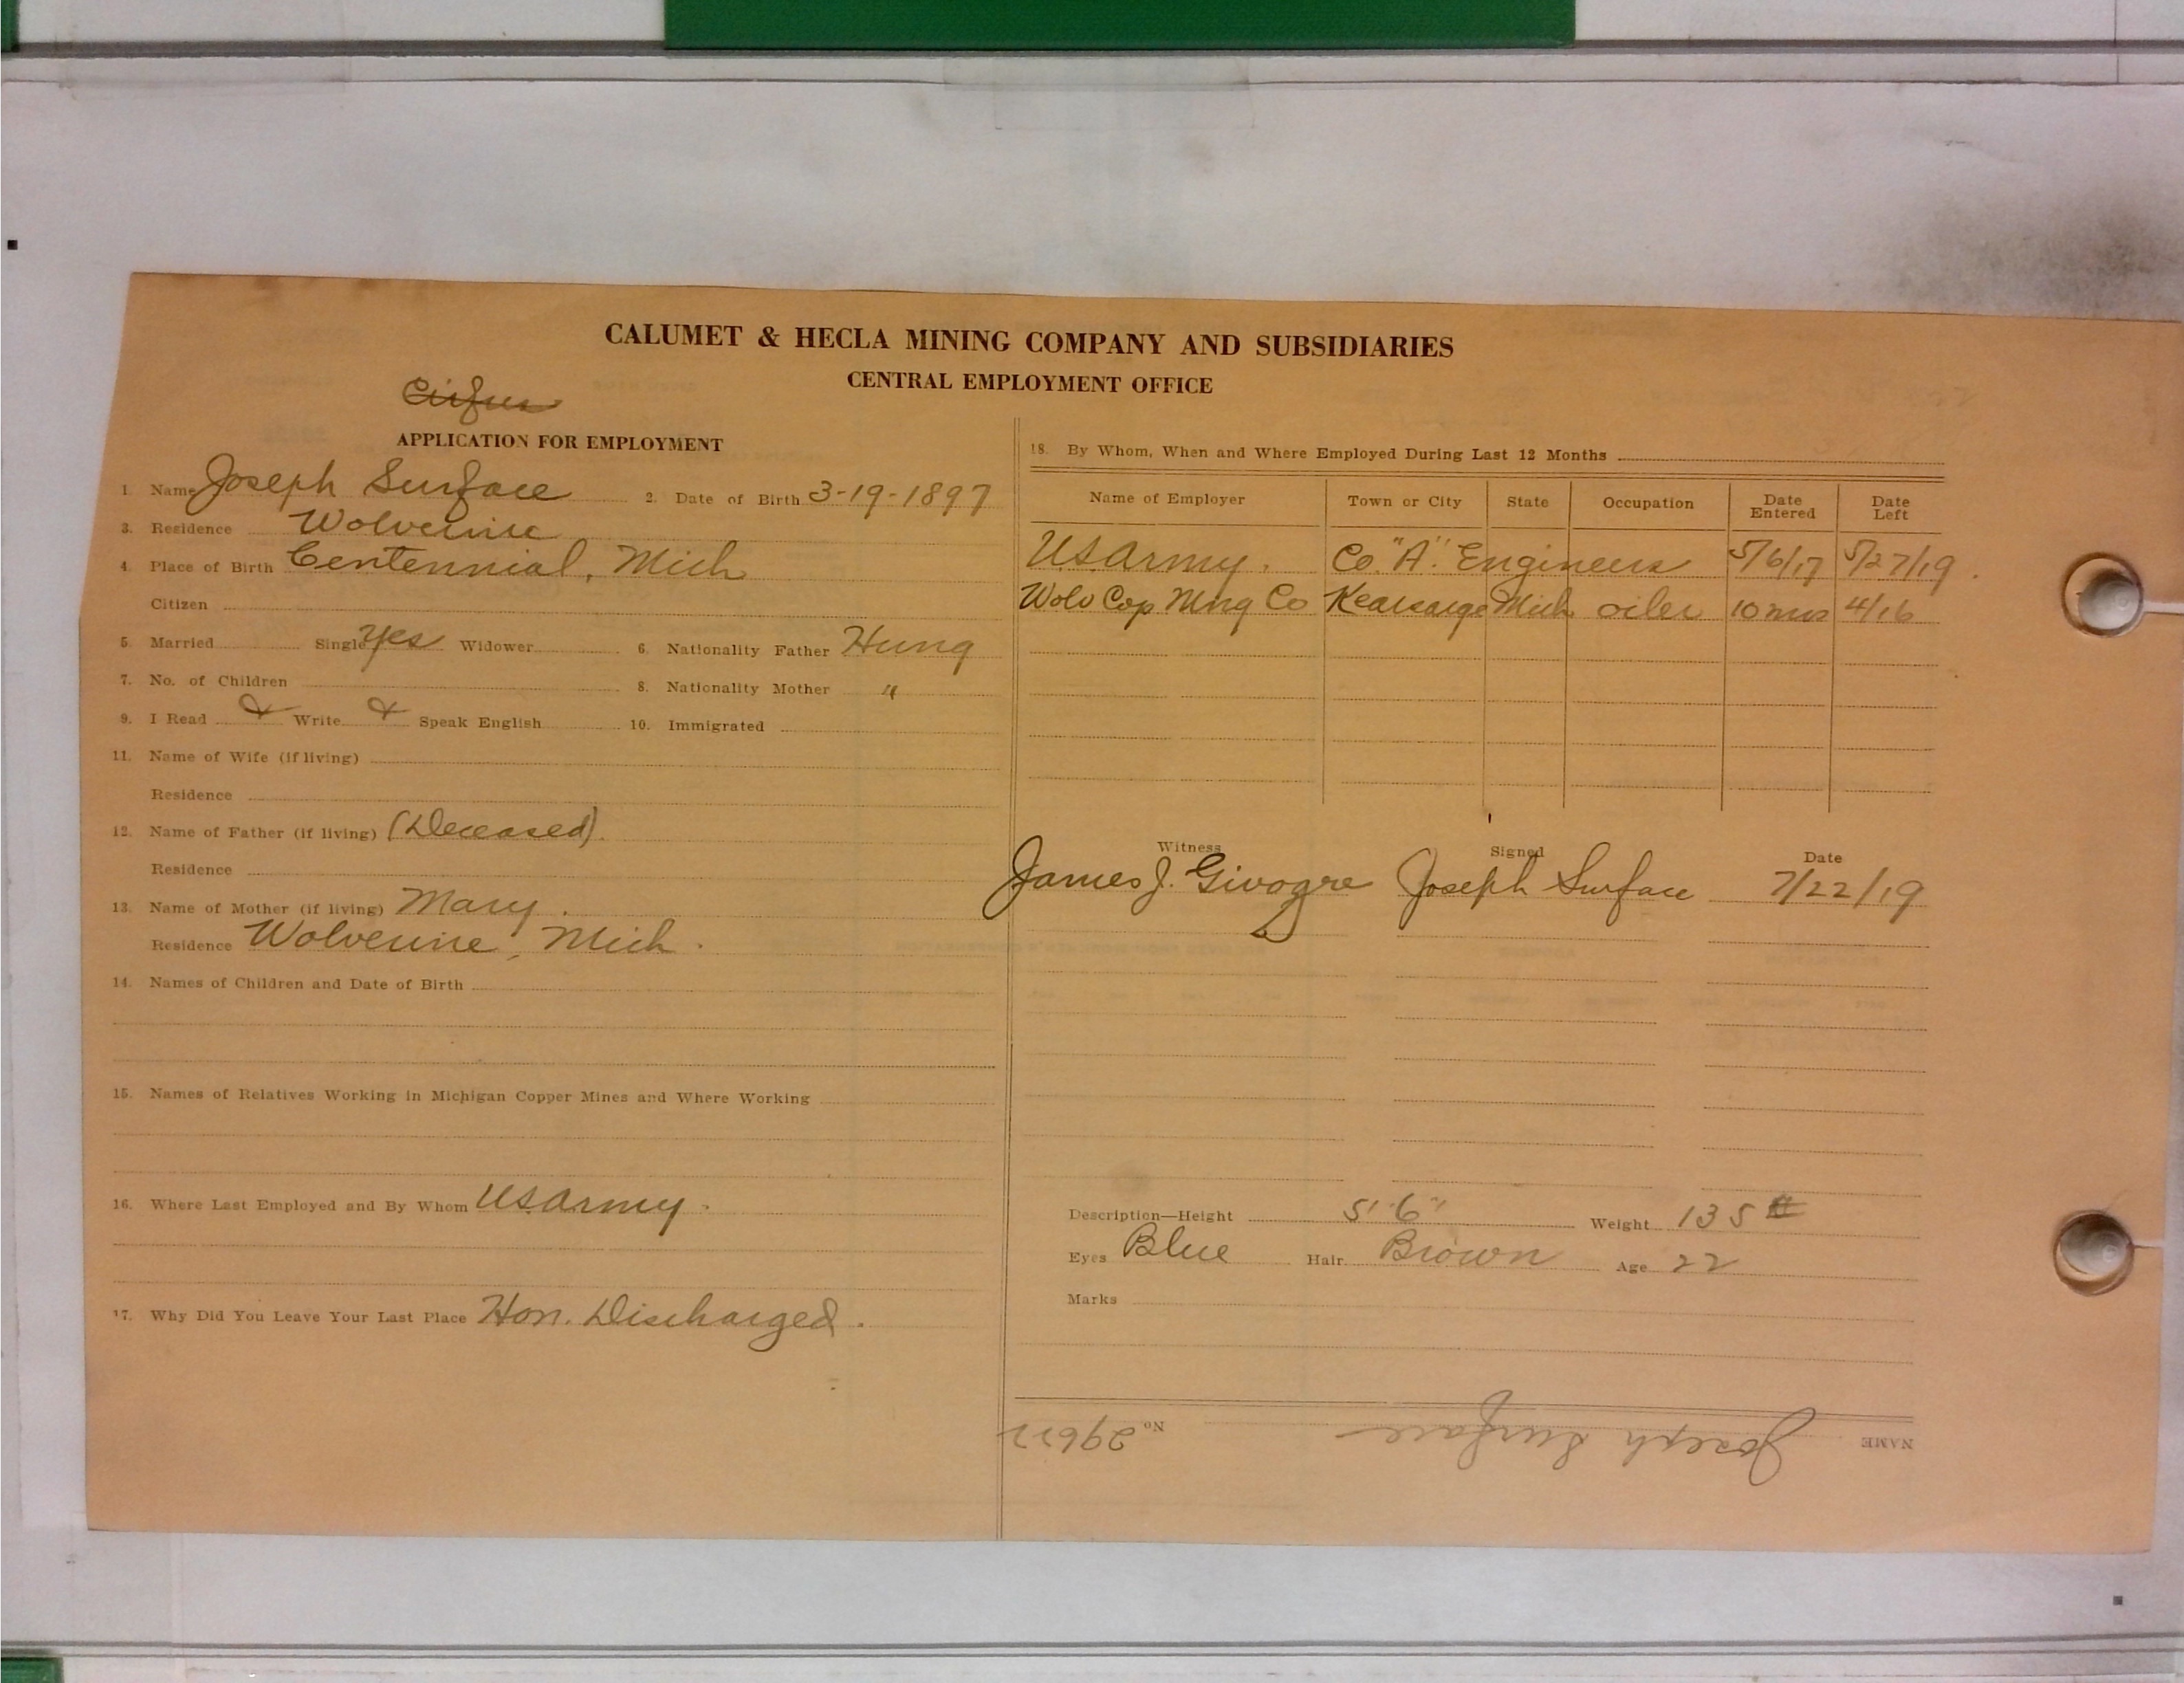 CALUMET & HECLA MINING COMPANY AND SUBSIDIARIES
CENTRAL EMPLOYMENT OFFICE
APPLICATION FOR EMPLOYMENT
1. Name Joseph Surface 2. Date of Birth 3-19-1897
3. Residence Wolverine
4. Place of Birth Centennial, Mich
Citizen
5. Married Single Yes Widower 6. Nationality Father Hung
7. No. of Children 8. Nationality Mother "
9. I Read & Write & Speak English 10. Immigrated
11. Name of Wife (if living)
Residence
12. Name of Father (if living) (Deceased).
Residence
13. Name of Mother (if living) Mary.
Residence Wolverine, Mich.
14. Names of Children and Date of Birth
15. Names of Relatives Working in Michigan Copper Mines and Where Working
16. Where Last Employed and By Whom US Army.
17. Why Did You Leave Your Last Place Hon. Discharged.
18. By Whom, When and Where Employed During Last 12 Months
Name of Employer Town or City State Occupation Date Entered Date Left
US Army. Co. "A". Engineers 5/6/17 5/27/19.
Wolv Cop Mng Co Kearsarge Mich oiler 10 mos 4/16
Witness Signed Date
James J. Joseph Surface 7/22/19
Description—Height 5' 6" Weight 135 #
Eyes Blue Hair Brown Age 22
Marks
NAME Joseph Surface No. 29622